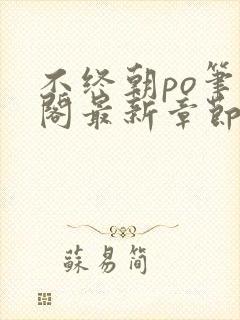 不终朝po笔
阁最新章节
苏易简